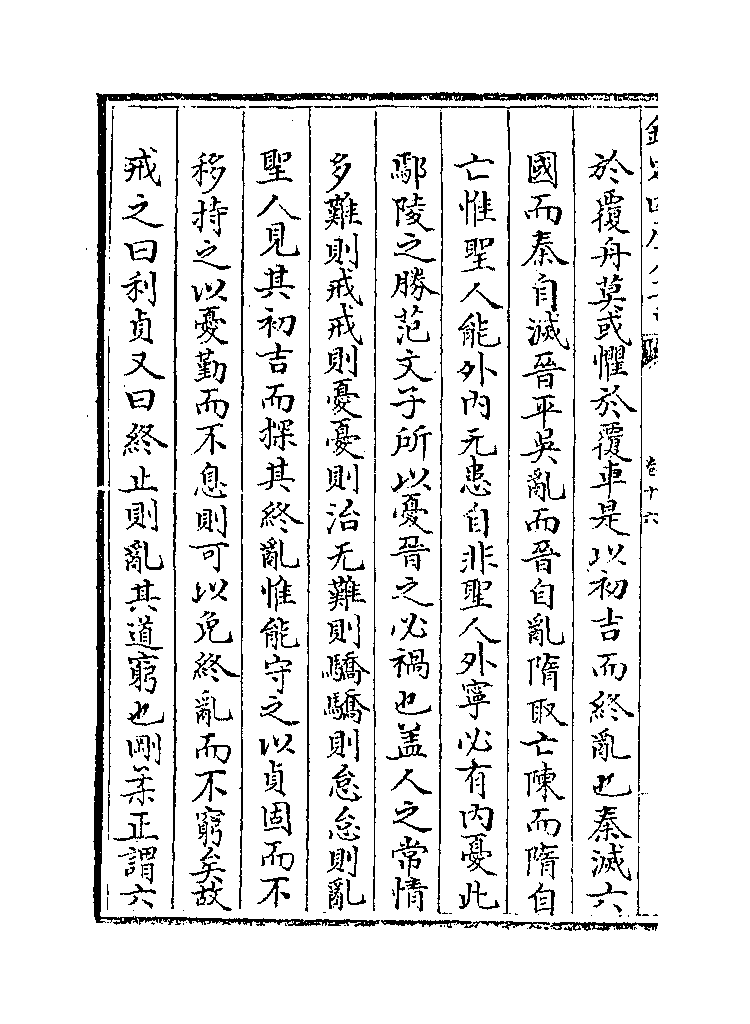 於覆舟莫或懼於覆車是以初吉而終亂也秦滅六
國而秦自滅晉平吳亂而晉自亂隋取亡陳而隋自
亡惟聖人能外内无患自非聖人外寧必有内憂此
鄢陵之勝范文子所以憂晉之必禍也盖人之常情
多難則戒戒則憂憂則治无難則驕驕則怠怠則亂
聖人見其初吉而探其終亂惟能守之以貞固而不
移持之以憂勤而不息則可以免終亂而不窮矣故
戒之曰利貞又曰終止則亂其道窮也剛柔正謂六
卷十六